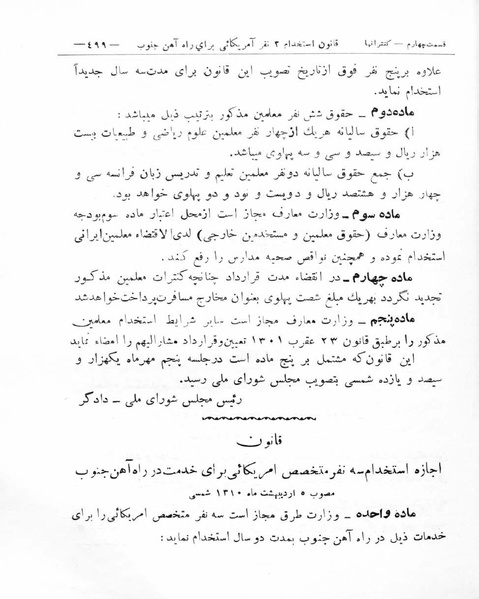 قسمت چهارم — کنتراتها قانون استخدام ۳ نفر آمریکائی برای راه آهن جنوب —۴۹۹—
علاوه برپنج نفر فوق ازتاریخ تصویب این قانون برای مدت سه سال جدیدآ
استخدام نماید.
ماده دوم ـ حقوق شش نفر معلمین مذکور بترتیب ذیل میباشد :
ا) حقوق سالیانه هریك ازچهار نفر معلمین علوم ریاضی و طبیعیات بیست
هزار ریال و سیصد و سی و سه پهلوی میباشد.
ب) جمع حقوق سالیانه دونفر معلمین تعلیم و تدریس زبان فرانسه سی و
چهار هزار و هشتصد ریال و دویست و نود و دو پهلوی خواهد بود.
ماده سوم ـ وزارت معارف مجاز است ازمحل اعتبار ماده سوم بودجه
وزارت معارف (حقوق معلمین و مستخدمین خارجی) لدی الاقتضاء معلمین ایرانی
استخدام نموده و همچنین نواقص صحیه مدارس را رفع کند.
ماده چهارم ـ در انقضاء مدت قرارداد چنانچه کنترات معلمین مذکور
تجدید نگردد بهریك مبلغ شصت پهلوی بعنوان مخارج مسافرت پرداخت خواهد شد
ماده پنجم ـ وزارت معارف مجاز است سایر شرایط استخدام معلمین
مذکور را برطبق قانون ۲۳ عقرب ۱۳۰۱ تعیین وقرارداد مشارالیهم را امضاء نماید
این قانون که مشتمل بر پنج ماده است درجلسه پنجم مهرماه یکهزار و
سیصد و یازده شمسی بتصویب مجلس شورای ملی رسید.
رئیس مجلس شورای ملی ـ دادگر
قانون
اجازه استخدام سه نفر متخصص امریکائی برای خدمت در راه آهن جنوب
مصوب ۵ اردیبهشت ماه ۱۳۱۰ شمسی
ماده واحده ـ وزارت طرق مجاز است سه نفر متخصص امریکائی را برای
خدمات ذیل در راه آهن جنوب بمدت دو سال استخدام نماید :